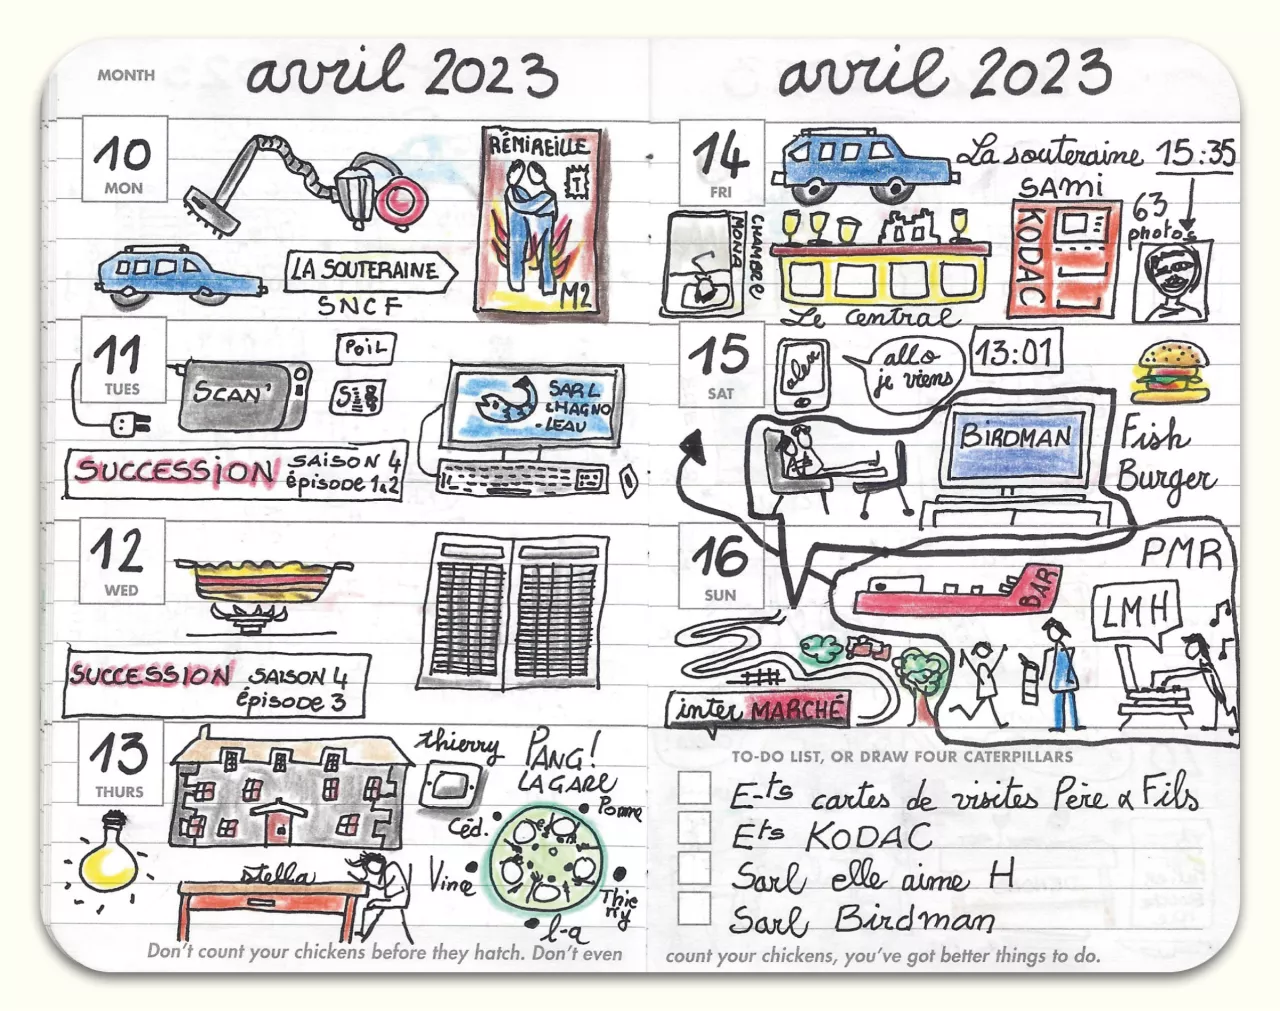 MONTH
avril 2023
10
MON
RÉMIREILLE
M2
LA SOUTERAINE
SNCF
11
TUES
SCAN'
POIL
SARL
&MAGNO
-LEAU
SUCCESSION SAISON 4
épisode 1&2
12
WED
SUCCESSION SAISON 4
épisode 3
13
THURS
thierry
PANG!
LA GARE
Pomme
Céd.
Vince
Thie
rry
l-a
stella
Don't count your chickens before they hatch. Don't even
avril 2023
14
FRI
La souteraine 15:35
SAMI
KODAC
63
photos
MONA
CHAMBRE
Le Central
15
SAT
alex
allo
je viens
13:01
BIRDMAN
Fish
Burger
16
SUN
PMR
BAR
LMH
inter MARCHÉ
TO-DO LIST, OR DRAW FOUR CATERPILLARS
E-ts cartes de visites Père & Fils
Ets KODAC
Sarl elle aime H
Sarl Birdman
count your chickens, you've got better things to do.